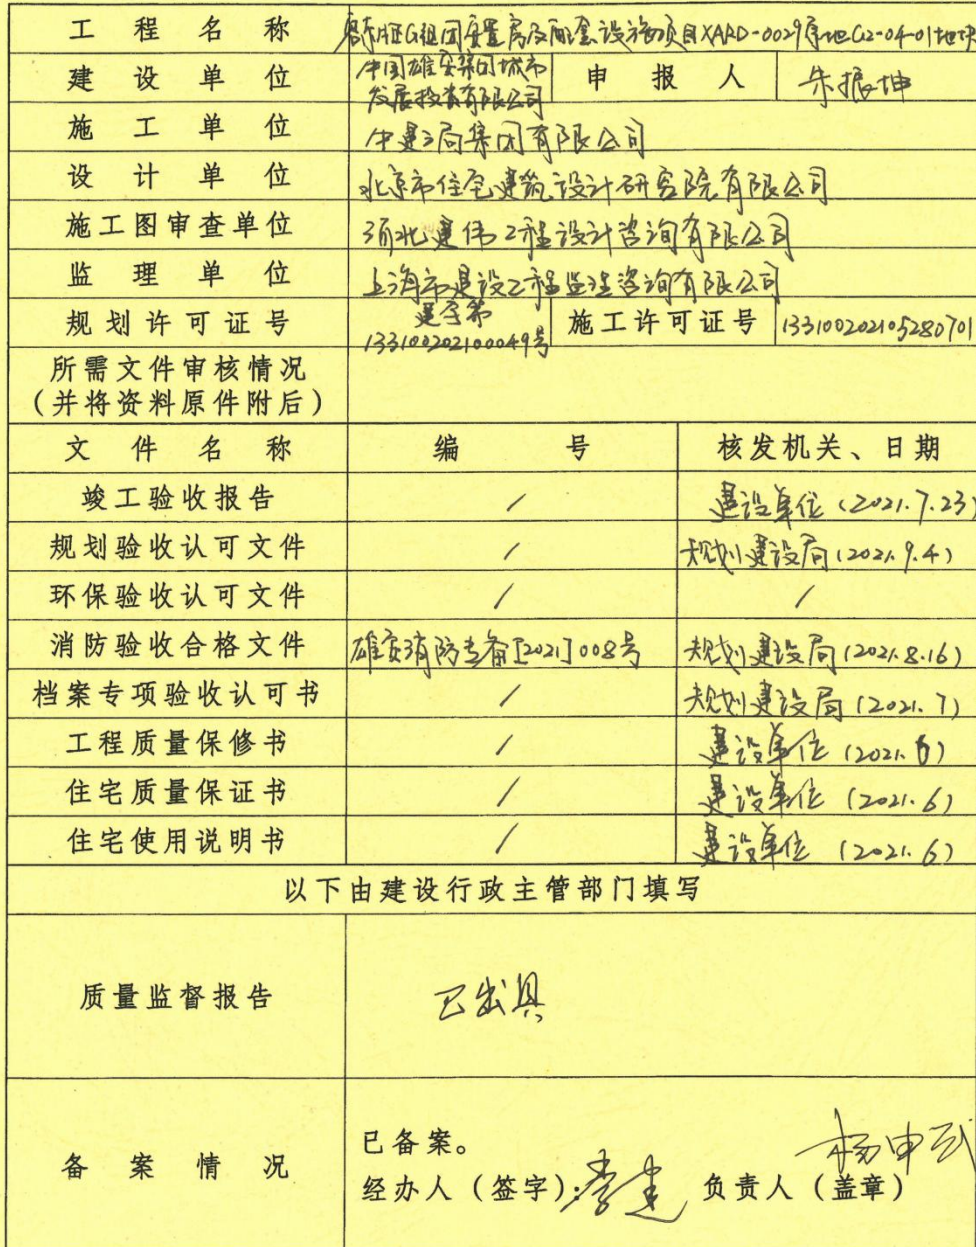 工程名称 容东片区G组团安置房及配套设施项目XARD-0029宗地G2-04-01地块
建设单位 中国雄安集团城市发展投资有限公司 申报人 朱振坤
施工单位 中建三局集团有限公司
设计单位 北京市住宅建筑设计研究院有限公司
施工图审查单位 河北建伟工程设计咨询有限公司
监理单位 上海市建设工程监理咨询有限公司
规划许可证号 建字第133100202100049号 施工许可证号 133100202105280701
所需文件审核情况
(并将资料原件附后)
文件名称 编号 核发机关、日期
竣工验收报告 / 建设单位(2021.7.23)
规划验收认可文件 / 规划建设局(2021.9.4)
环保验收认可文件 / /
消防验收合格文件 雄安消防专备[2021]008号 规划建设局(2021.8.16)
档案专项验收认可书 / 规划建设局(2021.7)
工程质量保修书 / 建设单位(2021.6)
住宅质量保证书 / 建设单位(2021.6)
住宅使用说明书 / 建设单位(2021.6)
以下由建设行政主管部门填写
质量监督报告 已出具
备案情况 已备案。
经办人(签字): 负责人(盖章)